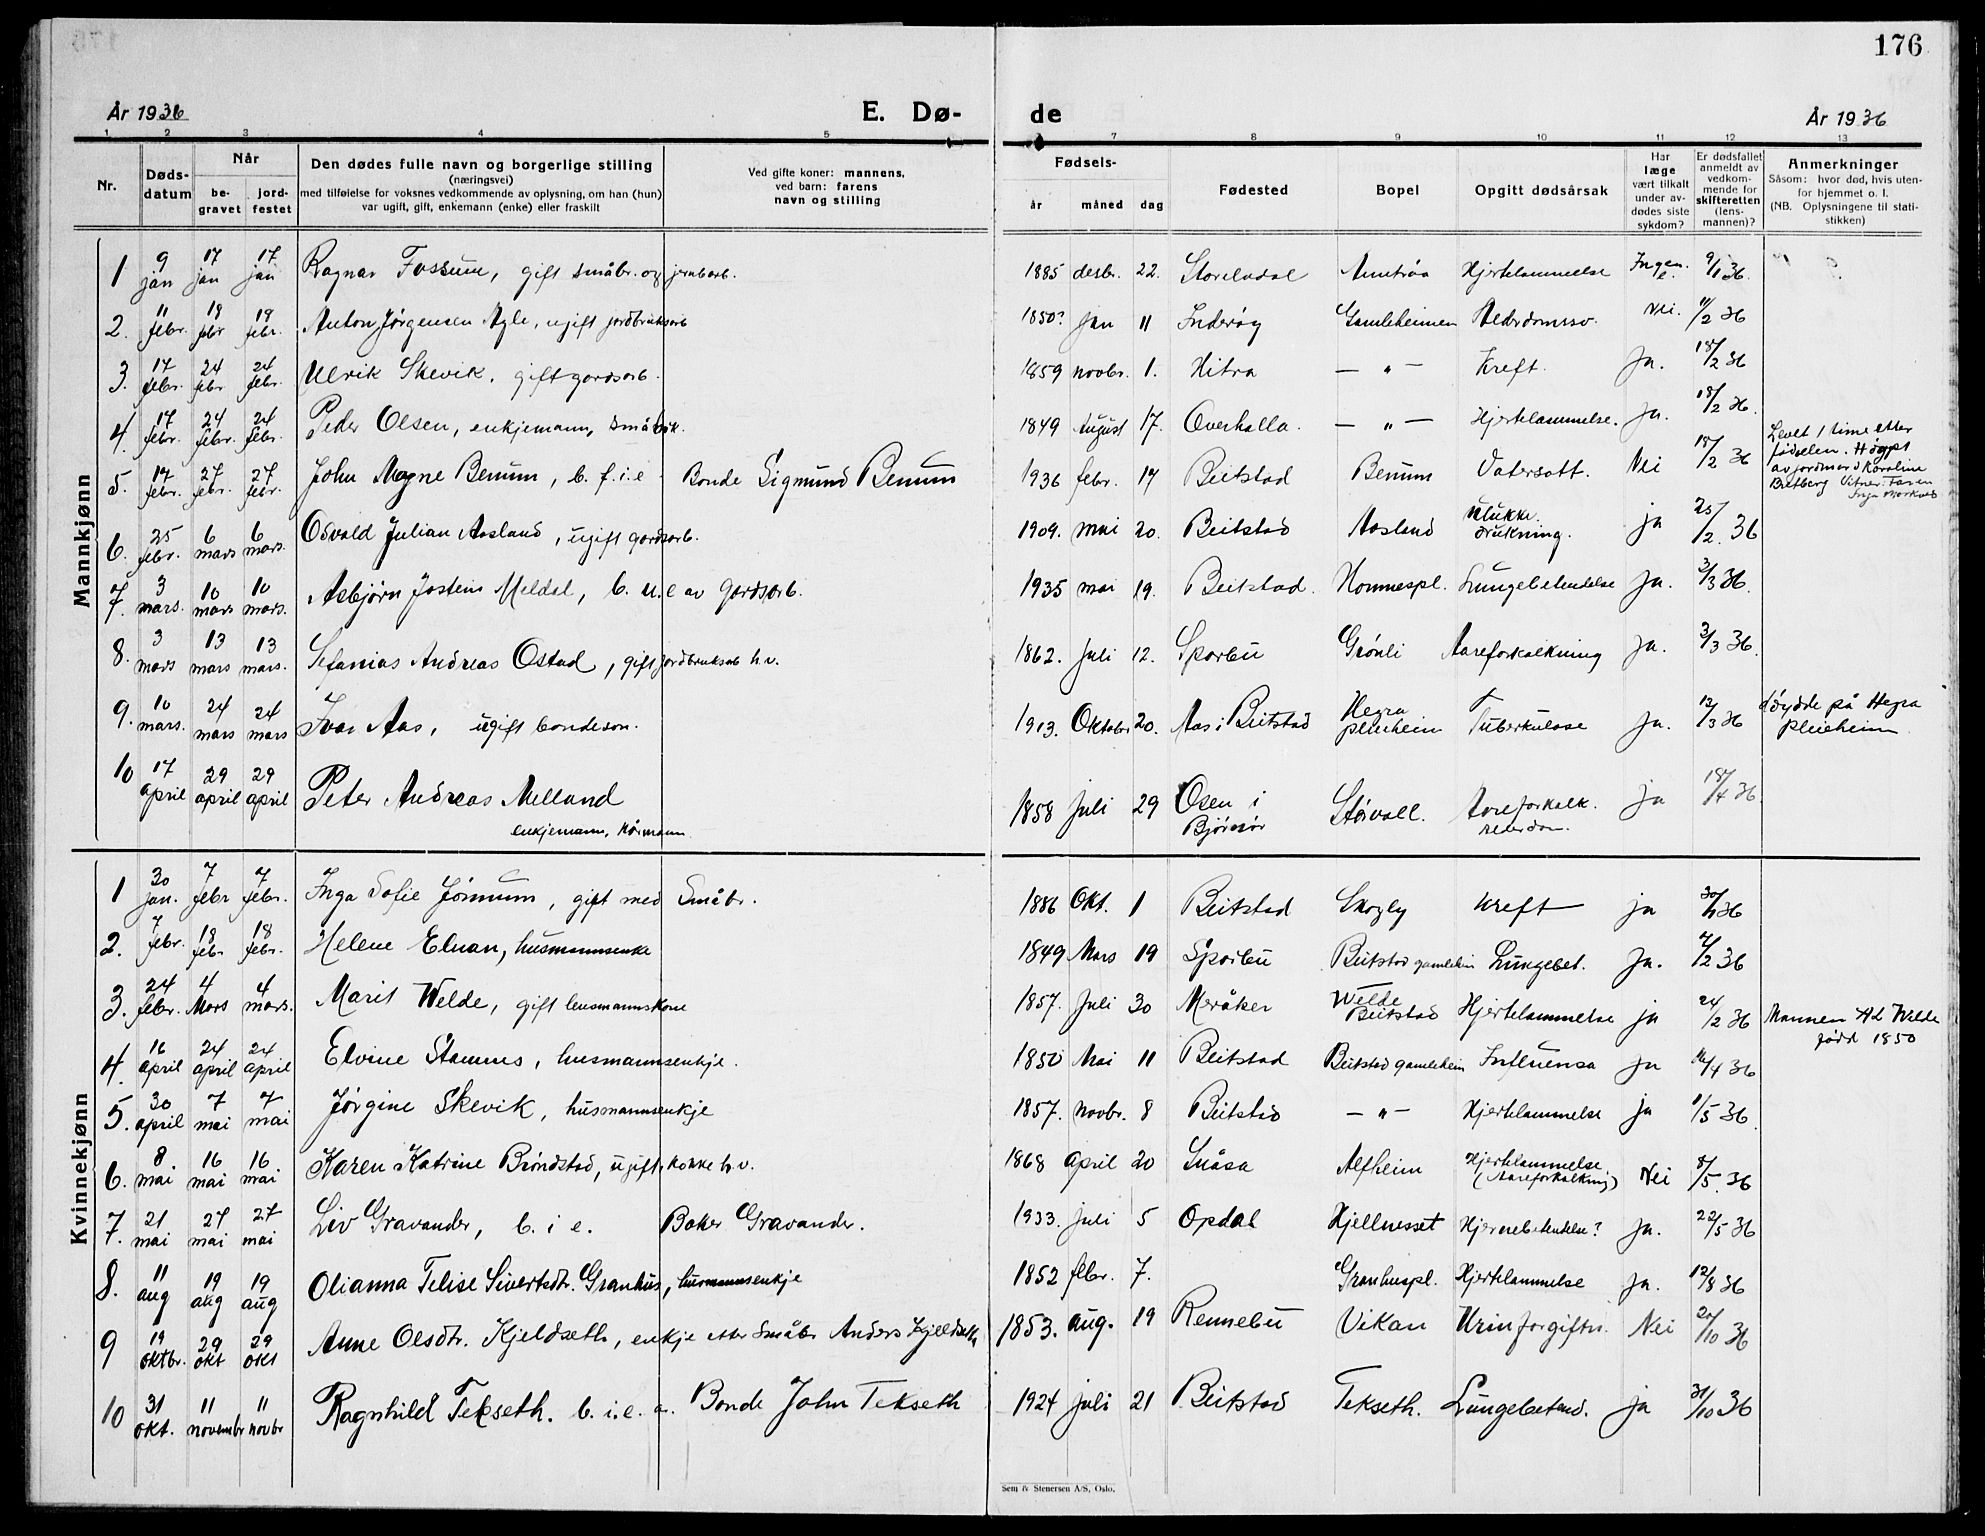 176
År 1936 E. Dø- de År 1936
1 2 3 4 5 7 8 9 10 11 12 13
Nr. Døds-datum Når be-gravet jord-festet
Den dødes fulle navn og borgerlige stilling
(næringsvei)
med tilføielse for voksnes vedkommende av oplysning, om han (hun)
var ugift, gift, enkemann (enke) eller fraskilt
Ved gifte koner: mannens,
ved barn: farens
navn og stilling
Fødsels-
år måned dag
Fødested Bopel Opgitt dødsårsak
Har læge vært tilkalt under av-dødes siste sykdom?
Er dødsfallet anmeldt av vedkom-mende for skifteretten (lens-mannen)?
Anmerkninger
Såsom: hvor død, hvis uten-
for hjemmet o. l.
(NB. Oplysningene til stati-
stikken)
Mannkjønn
1 9 jan 17 jan 17 jan Ragnar Fossum, gift småbr. og jernbarb. 1885 desbr. 22. Hjertelammelse Ingen 9/1 36.
2. 11 febr. 18 febr 19 febr. Anton Jørgensen Agle, ugift jordbruksarb 1850? jan 11 Inderøy Gamleheimen Nei. 11/2 36
3. 17 febr. 24 febr 24 febr. Ulrik Skevik, gift gardsarb. 1859 novbr. 1. Hitra — " — Kreft. Ja. 18/2 36
4. 17 febr. 24 febr. 24 febr. Peder Olsen, enkjemann, småbruk. 1849 August 17. Overhalla. — " — Hjertelammelse. Ja. 18/2 36.
5. 17 febr. 27 febr. 27 febr. John Magne Benum, b. f. i. e Bonde Sigmund Benum 1936 febr. 17 Beitstad Benum Vatersott. Nei 18/2 36
Levet 1 time etter
fødselen. Hdøypt
av jordmor d Karoline
Bretberg Vitner: Faren
Inga Morknes
6. 25 febr. 6 mars 6 mars. Osvald Julian Aasland, ugift gardsarb. 1909. mai 20. Beitstad Aasland Ulukke. drukning. ja 25/2. 36
7. 3 mars. 10 mars 10 mars. Asbjørn Jostein Meldal, b. u. e av gardsarb. 1935 mai 19. Beitstad. Hommespl. Lungebetendelse Ja. 3/3 36.
8. 3 mars 13 mars 13 mars. Sefanias Andreas Ostad, gift jordbruksarb h.v. 1862. Juli 12. Sparbu Grønli Aareforkalkning Ja. 3/3 36.
9. 10 mars. 24 mars 24 mars Ivar Aas, ugift bondeson. 1913. Oktober 20. Aas i Beitstad Hegra pleieheim Tuberkulose Ja. 12/3 36 døydde på Hegra
pleieheim
10 17 april 29 april 29 april Peter Andreas Melland
enkjemann, kårmann 1858 Juli 29 Osen i Bjørnør Støvoll. Aareforkalk. ja 18/4 36.
Kvinnekjønn
1 30 jan. 7 febr 7 febr. Inga Sofie Jønnum, gift med Småbr. 1886 Okt. 1 Beitstad Skogly Kreft ja 30/1 36
2. 7 febr. 18 febr 18 febr. Helene Elnan, husmannsenke 1849 Mars 19 Sparbu Beitstad gamleheim Lungebet. Ja. 7/2 36
3. 24 febr. 4 Mars 4 mars. Marit Welde, gift lensmannskone 1857. Juli 30 Meråker Welde Beitstad Hjertelammelse ja 24/2 36 Mannen Ad Welde
fødd 1850
4. 16 april 24 april 24 april Elvine Stamnes, husmannsenkje. 1850 Mai 11 Beitstad Beitstad gamleheim Influensa Ja 16/4 36
5. 30 april 7 mai 7 mai Jørgine Skevik, husmannsenkje 1857. novbr. 8 Beitstad — " — Hjertelammelse ja 1/5 36.
6. 8 mai 16 mai 16 mai Karen Katrine Brøndstad, ugift, kokke h.v. 1868 april 20 Snåsa Alfheim Hjertelammelse. (Aareforkalkning) Nei 8/5. 36
7. 21 mai 27 mai 27 mai Liv Gravander, b. i e. Baker Gravander. 1933. Juli 5 Opdal Hjellnesset Hjernebetendelse? Ja. 22/5 36
8. 11 aug 19 aug 19 aug Olianna Felise Sivertsdtr. Granhus, husmannsenkje 1852 febr. 7. Granhuspl. Hjertelammelse Ja. 12/8 36
9 19 oktbr. 29 okt 29 okt Anne Olsdtr. Kjeldseth, enkje etter Småbr Anders Kjeldseth 1853. aug. 19 Rennebu Vikan Urinforgiftn. Nei 20/10 36
10 31 okt. 11 novembr 11 novbr Ragnhild Tekseth. b. i. e. a. Bonde John Tekseth 1924 juli 21 Beitstad Tekseth. Lungebetend. ja 31/10 36
Sem & Stenersen A/S, Oslo.